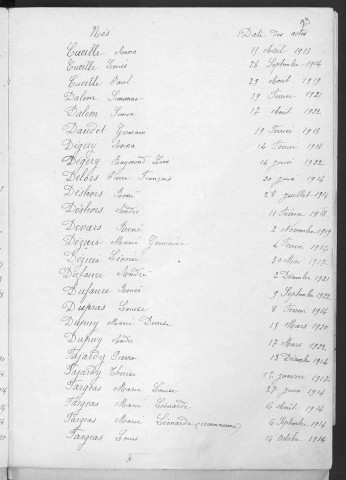 Nés Date des actes
Cueille Anna 11 Avril 1913
Cueille Louis 28 Septembre 1914
Cueille Paul 29 Août 1919
Dalem Simonne 19 Février 1921
Dalem Simon 17 Août 1922
Daudet Germain 19 Février 1913
Digery Anna 14 Février 1918
Digery Raymond Léon 16 Juin 1922
Delors Pierre François 20 Juin 1914
Deshors René 28 Juillet 1914
Deshors André 11 Février 1918
Devars René 2 Novembre 1919
Marie Germaine 4 Février 1916
Léonce 30 Mai 1917
Dufaure André 2 Décembre 1921
Dufaure 9 Septembre 1922
Dupras Louise 8 Février 1914
Dupuy Marie Denise 15 Mars 1920
Dupuy André 17 Mars 1922
Fajardy Pierre 13 Décembre 1914
Fajardy Thérèse 17 Janvier 1917
Fargeas Marie Louise 27 Juin 1914
Fargeas Marie Léonarde 6 Août 1914
Fargeas Marie Léonarde (reconnaissance) 6 Septembre 1914
Fargeas Louis 14 Octobre 1914